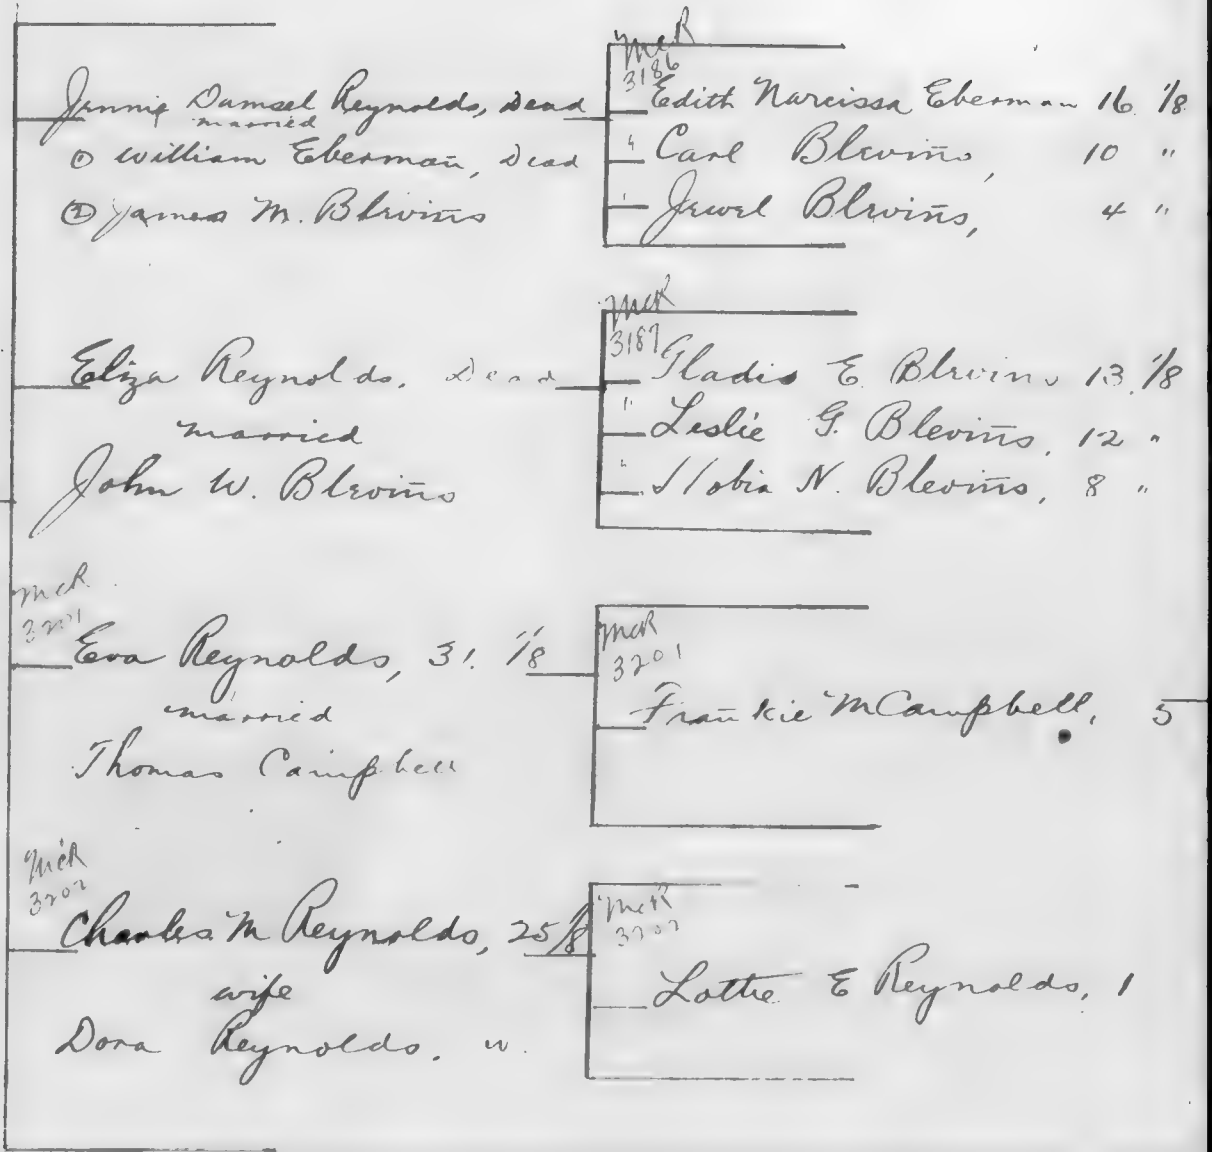 Jennie Damsel Reynolds, Dead
married
① William Eberman, Dead
② James M. Blevins
McR
3186
Edith Narcissa Eberman 16 1/8
" Carl Blevins, 10 "
" Jewel Blevins, 4 "
Eliza Reynolds. Dead
married
John W. Blevins
McR
3187
Gladis E. Blevins 13 1/8
" Leslie G. Blevins, 12 "
" N. Blevins, 8 "
McR
3201
Eva Reynolds, 31. 1/8
married
Thomas Campbell
McR
3201
Frankie M Campbell, 5
McR
3202
Charles M Reynolds, 25 1/8
wife
Dora Reynolds. w.
McR
3202
Lottie E Reynolds, 1